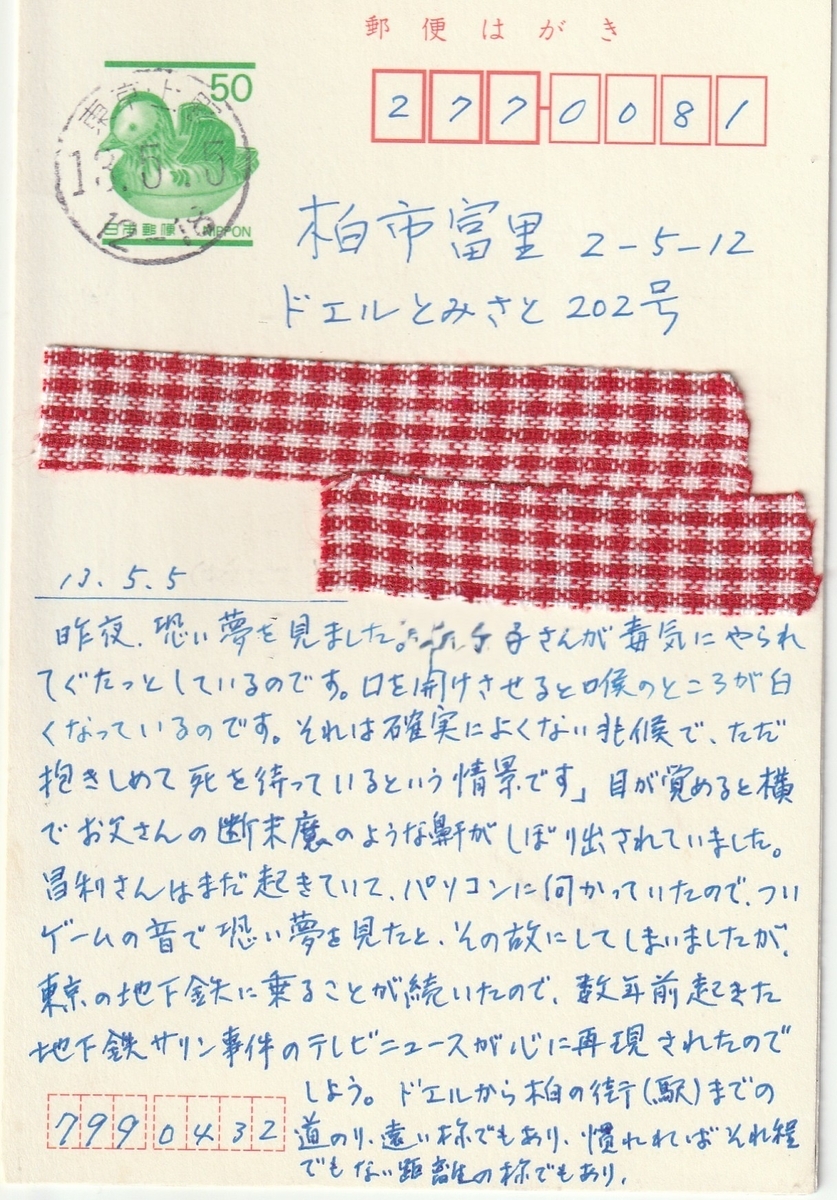 郵便はがき
50
日本郵便 NIPPON
東京上野
13.5.5
12-18
277-0081
柏市富里 2-5-12
ドエルとみさと 202号
13.5.5
昨夜、恐い夢を見ました。子さんが毒気にやられ
てぐたっとしているのです。口を開けさせると喉のところが白
くなっているのです。それは確実によくない兆候で、ただ
抱きしめて死を待っているという情景です」目が覚めると横
でお父さんの断末魔のような鼾がしぼり出されていました。
昌利さんはまだ起きていて、パソコンに向かっていたので、つい
ゲームの音で恐い夢を見たと、その故にしてしまいましたが、
東京の地下鉄に乗ることが続いたので、数年前起きた
地下鉄サリン事件のテレビニュースが心に再現されたので
しょう。ドエルから柏の街(駅)までの
道のり、遠い様でもあり、慣れればそれ程
でもない距離の様でもあり、
7990432